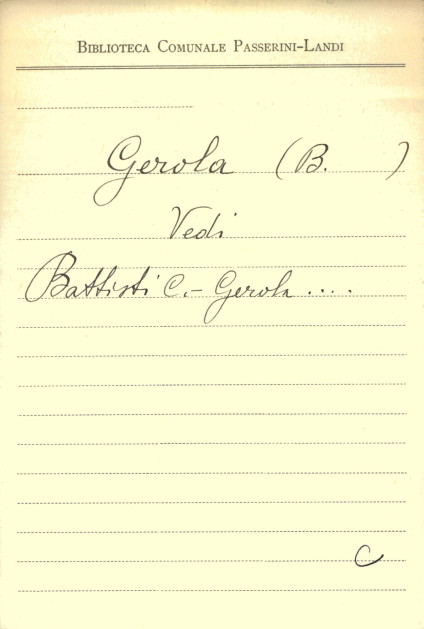 BIBLIOTECA COMUNALE PASSERINI-LANDI
Gerola (B. )
Vedi
Battisti C. - Gerola ....
C